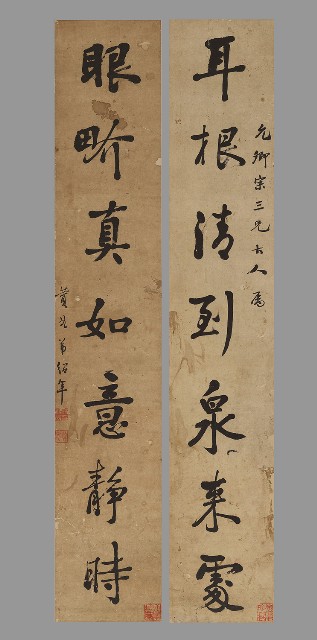 耳根清到泉來處
允卿宗三兄大人屬
眼畍真如意靜時
紹年